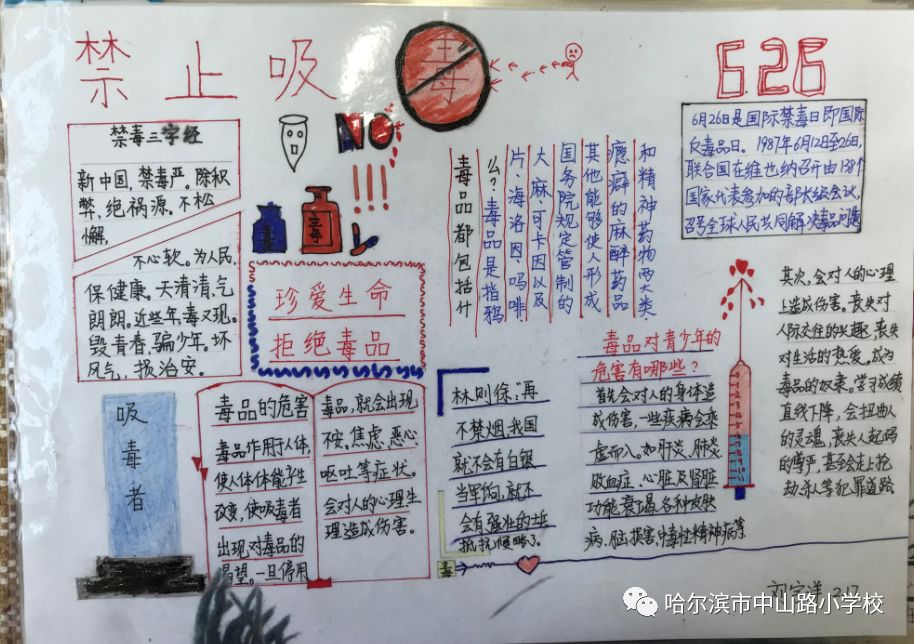 禁止吸毒
626
禁毒三字经
新中国,禁毒严。除积
弊,绝祸源。不松
懈,
不心软。为人民,
保健康。天清清,气
朗朗。近些年,毒又现。
毁青春,骗少年。坏
风气,损治安。
NO
!!!
毒
毒
珍爱生命
拒绝毒品
毒品都包括什
么?毒品是指鸦
片、海洛因、吗啡
大麻、可卡因以及
国务院规定管制的
其他能够使人形成
瘾癖的麻醉药品
和精神药物两大类
6月26日是国际禁毒日即国际
反毒品日。1987年6月12日至26日,
联合国在维也纳召开由138个
国家代表参加的部长级会议,
召号全球人民共同解决毒品问题
吸毒者
毒品的危害
毒品作用于人体,
使人体体能产生
改变,使吸毒者
出现对毒品的
渴望。一旦停用
毒品,就会出现
不安、焦虑、恶心
呕吐等症状。
会对人的心理生
理造成伤害。
林则徐:“再
不禁烟,我国
就不会有白银
当军饷,就不
会有强壮的士兵
抵抗侵略了。
毒
毒品对青少年的
危害有哪些?
首先会对人的身体造
成伤害,一些疾病会乘
虚而入。如肝炎、肺炎
败血症、心脏及肾脏
功能衰竭、各种皮肤
病、脑损害、中毒性精神病等
其次,会对人的心理
上造成伤害。丧失对
人际交往的兴趣,丧失
对生活的热爱,成为
毒品的奴隶。学习成绩
直线下降,会扭曲人
的灵魂,丧失人起码
的尊严,甚至会走上抢
劫、杀人等犯罪道路
2.17
哈尔滨市中山路小学校